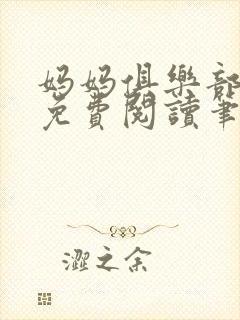 妈妈俱樂部
免費閱讀筆
澀之余